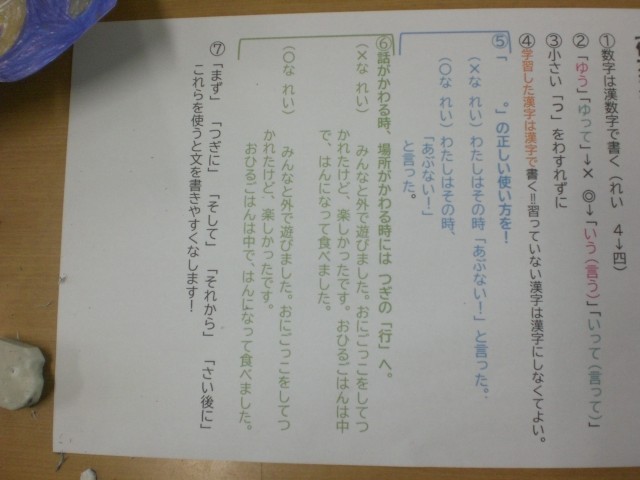 ①数字は漢数字で書く（れい　4→四）
②「ゆう」「ゆって」→×　◎→「いう（言う）」「いって（言って）」
③小さい「つ」をわすれずに
④学習した漢字は漢字で書く!!習っていない漢字は漢字にしなくてよい。
⑤「　　。」の正しい使い方を！
（×な れい）わたしはその時「あぶない！」と言った。
（○な れい）わたしはその時、
「あぶない！」
と言った。
⑥話がかわる時、場所がかわる時には つぎの「行」へ。
（×な れい）　みんなと外で遊びました。おにごっこをしてつ
かれたけど、楽しかったです。おひるごはんは中
で、はんになって食べました。
（○な れい）　みんなと外で遊びました。おにごっこをしてつ
かれたけど、楽しかったです。
おひるごはんは中で、はんになって食べました。
⑦「まず」　「つぎに」　「そして」　「それから」　「さい後に」
これらを使うと文を書きやすくなします！